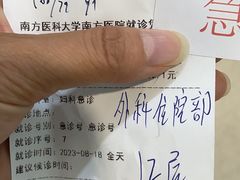 急
南方医科大学南方医院就诊
1元
妇科急诊
外科住院部
就诊地点:
就诊号别: 急诊号 急诊号
就诊序号: 7
就诊时间: 2023-08-18 全天
建议候诊时间:
12层